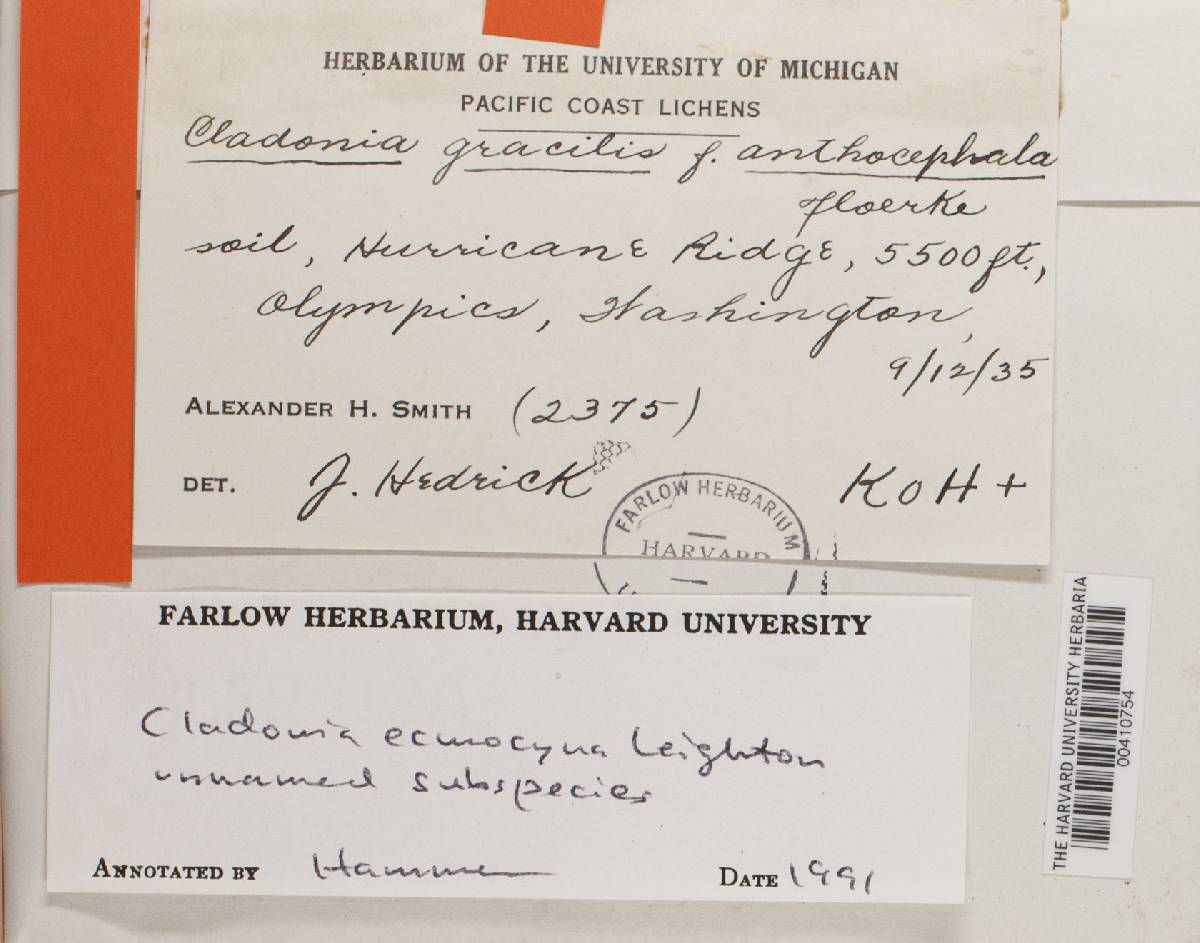 HERBARIUM OF THE UNIVERSITY OF MICHIGAN
PACIFIC COAST LICHENS
Cladonia gracilis f. anthocephala
floerke
soil, Hurricane Ridge, 5500 ft.,
Olympics, Washington,
9/12/35
ALEXANDER H. SMITH (2375)
DET. J. Hedrick KOH+
FARLOW HERBARIUM
HARVARD
FARLOW HERBARIUM, HARVARD UNIVERSITY
Cladonia ecmocyna Leighton
unnamed subspecies
ANNOTATED BY Hammer DATE 1991
THE HARVARD UNIVERSITY HERBARIA
00410754